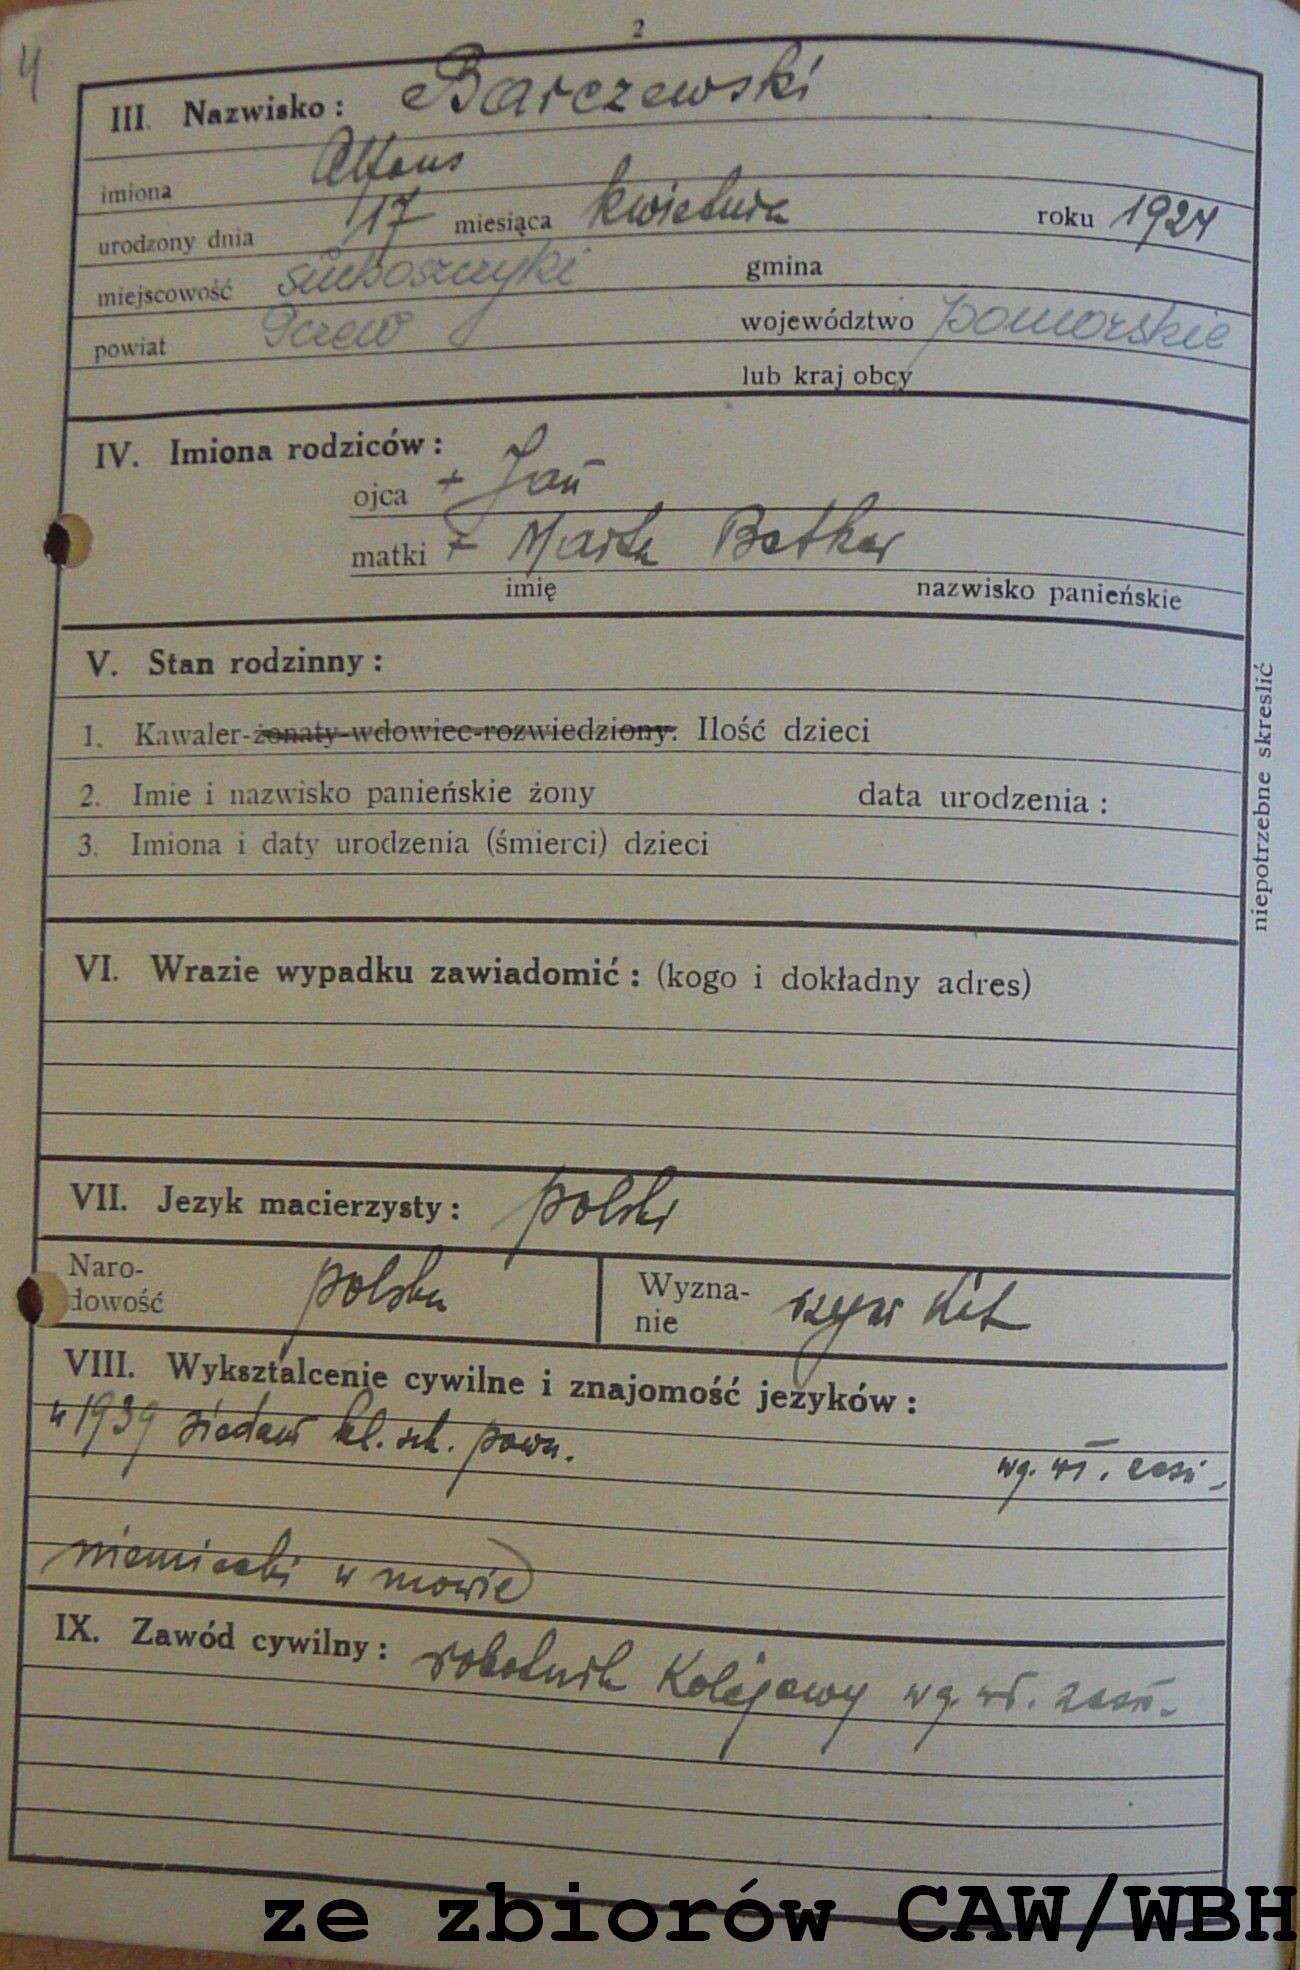 4
2
III. Nazwisko: Barczewski
imiona Alfons
urodzony dnia 17 miesiąca kwietnia roku 1924
miejscowość gmina
powiat Tczew województwo pomorskie
lub kraj obcy
IV. Imiona rodziców:
ojca + Jan
matki + Marta Betker
imię nazwisko panieńskie
V. Stan rodzinny:
1. Kawaler-żonaty-wdowiec-rozwiedziony. Ilość dzieci
2. Imie i nazwisko panieńskie żony data urodzenia:
3. Imiona i daty urodzenia (śmierci) dzieci
niepotrzebne skreslić
VI. Wrazie wypadku zawiadomić: (kogo i dokładny adres)
VII. Jezyk macierzysty: polski
Naro-
dowość polska
Wyzna-
nie rzym kat
VIII. Wykształcenie cywilne i znajomość jezyków:
w 1939 siedem kl. szk. pow.
wg. wł. zezn.
niemiecki w mowie
IX. Zawód cywilny: robotnik kolejowy wg. wł. zezn.
ze zbiorów CAW/WBH